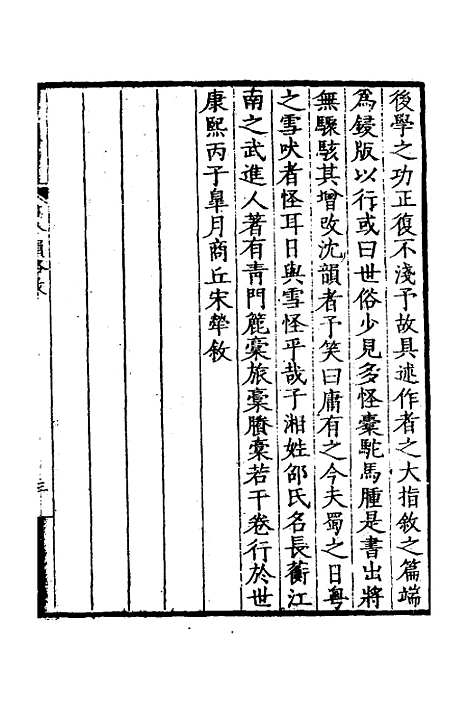 後學之功正復不淺予故具述作者之大指敘之篇端
爲鋟版以行或曰世俗少見多怪橐駝馬腫是書出將
無驟駭其增改沈韻者予笑曰庸有之今夫蜀之日粵
之雪吠者怪耳日與雪怪乎哉子湘姓邵氏名長蘅江
南之武進人著有靑門簏稾旅稾賸稾若干卷行於世
康熙丙子皐月商丘宋犖敘